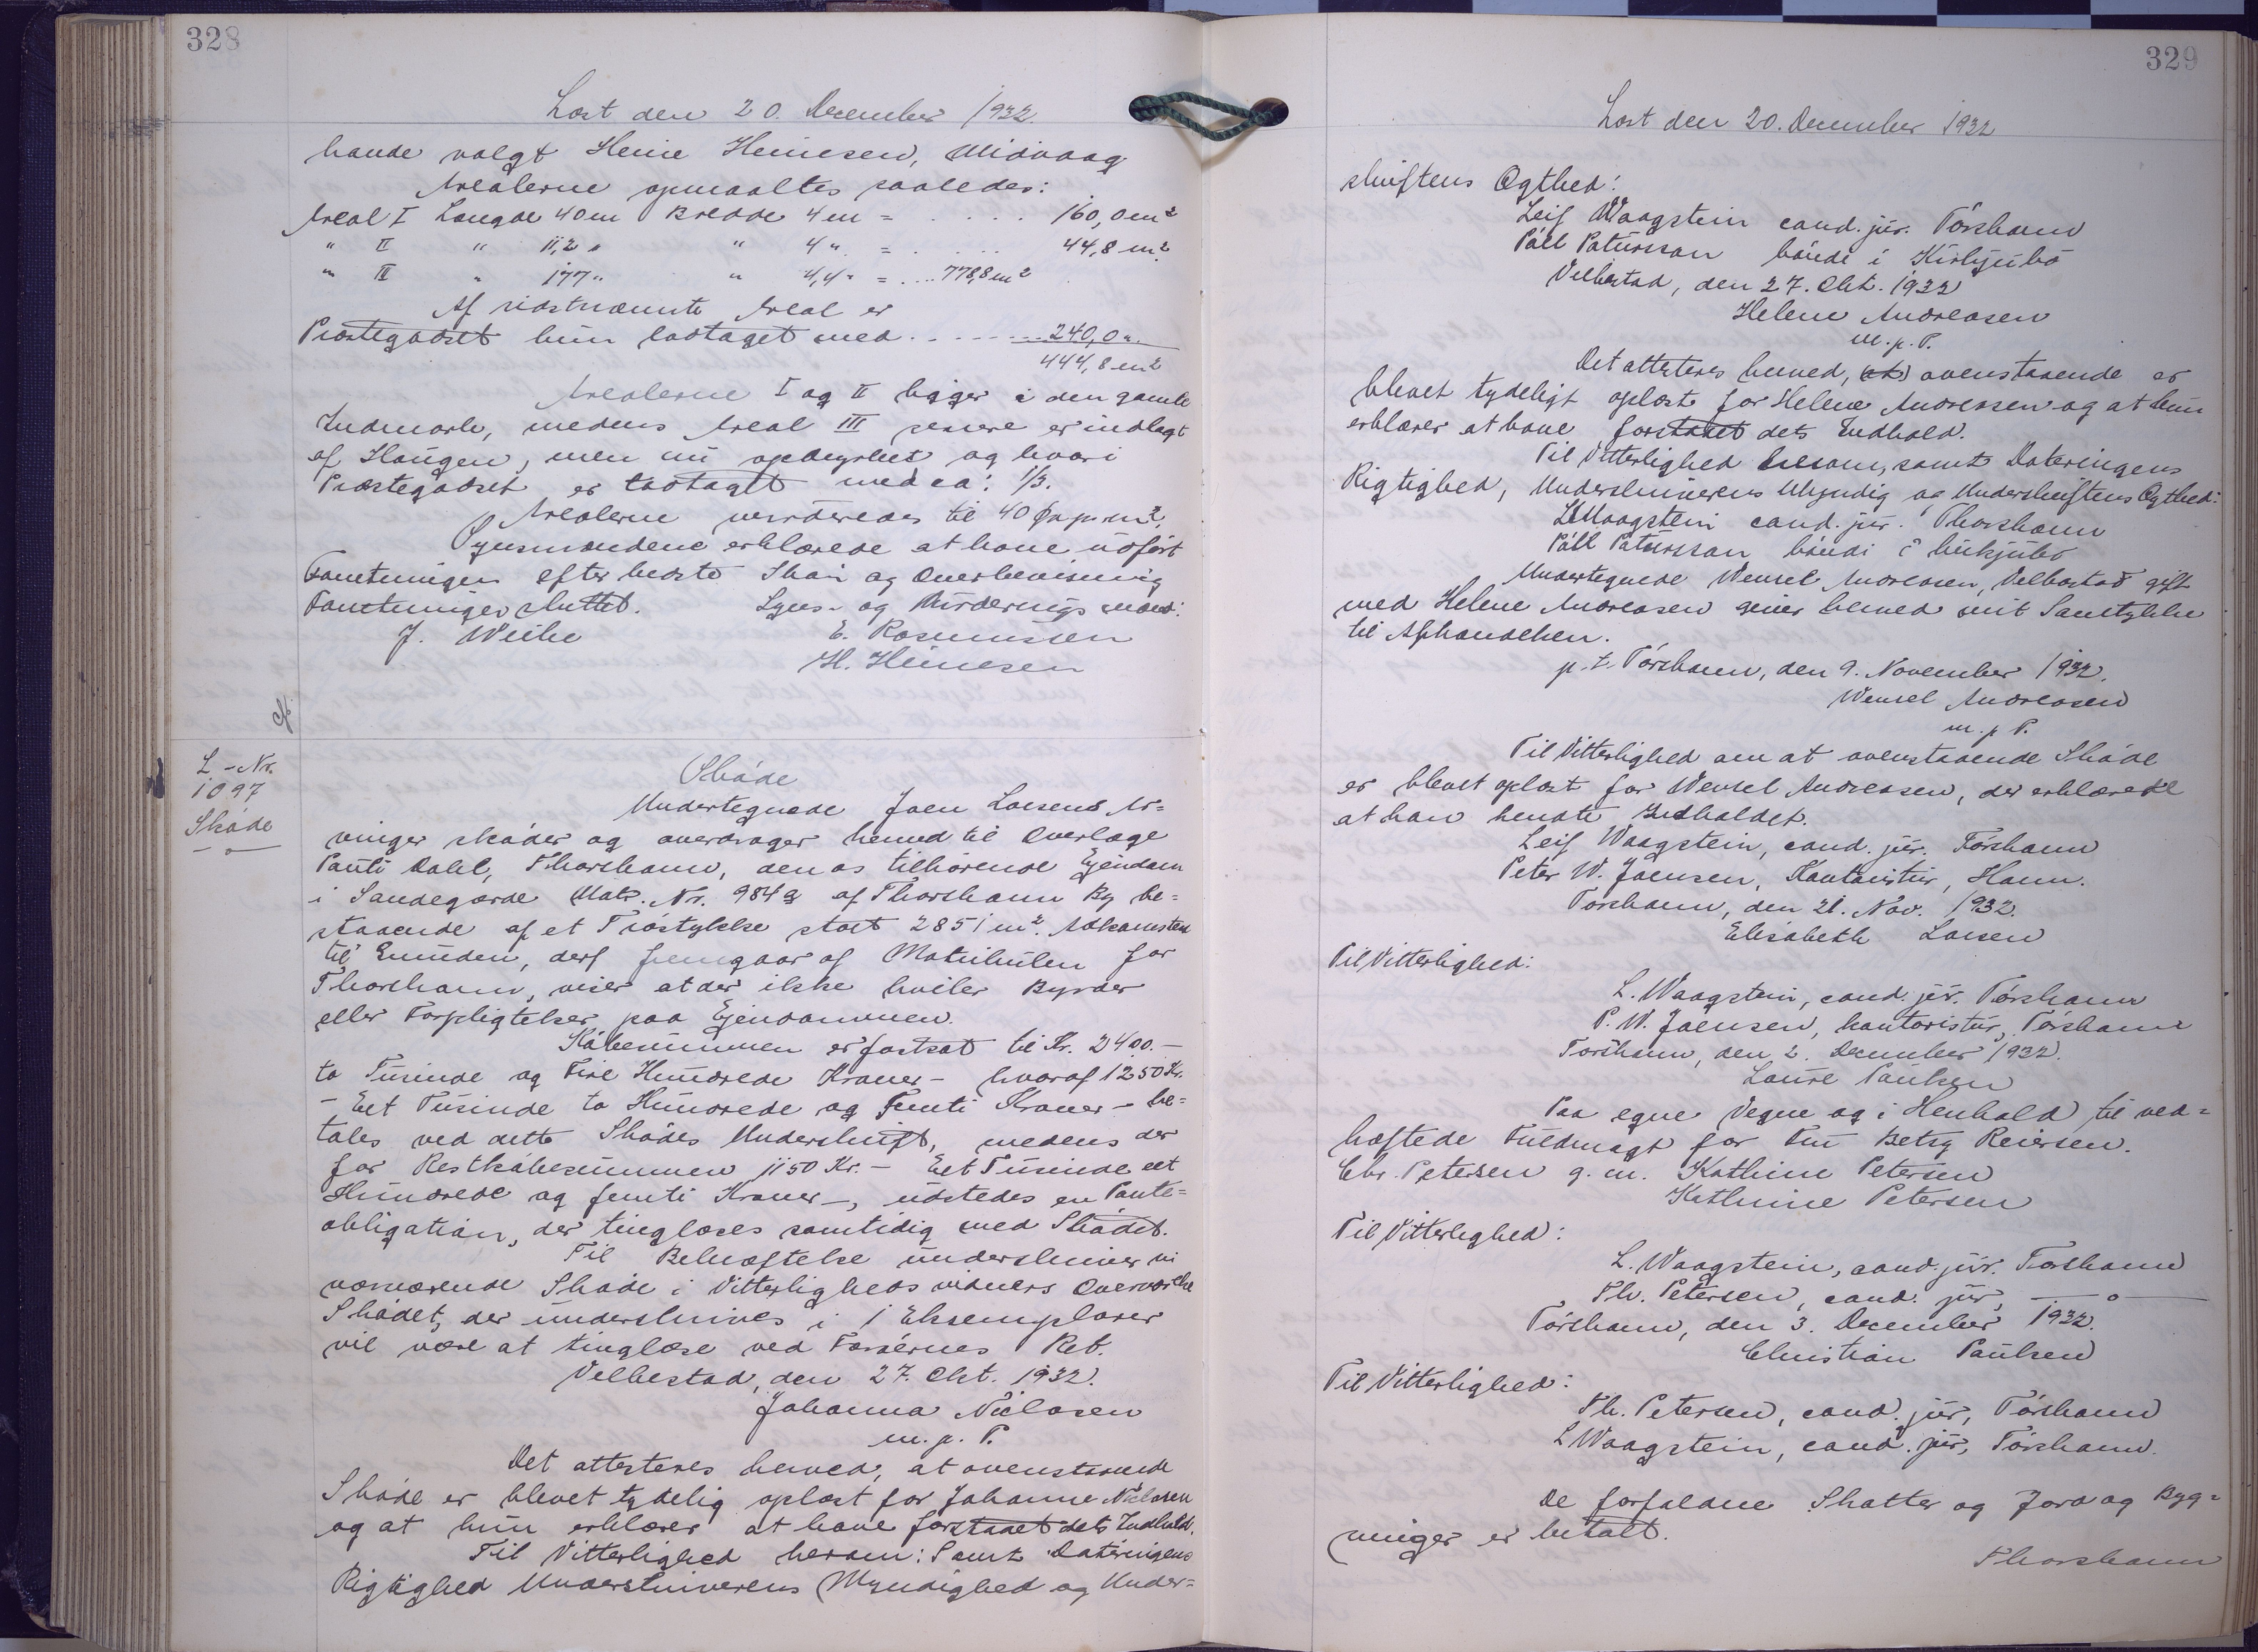 328
Læst den 20. December 1932.
havde valgt Heine Heinesen, Midvaag
Arealerne opmaaltes saaledes:
Areal I Længde 40m Bredde 4m = . . . . . 160,0m²
" II " 11,2 " " 4 " = . . . . . 44,8 m²
" III " 177 " " 4,4 " = . . . . 778,8 m²
Af sidstnævnte Areal er
Præstegodset kun lodtaget med . . . . . . . 240,0 "
444,8 m²
Arealerne I og II ligger i den gamle
Indmark, medens Areal III senere er indlagt
af Haugen, men nu opdyrket og hvori
Præstegodset er lodtaget med ca: 1/3.
Arealerne vurderedes til 40 Øre pr. m².
Synsmændene erklærede at have udført
Forretningen efter bedste Skøn og Overbevisning
Forretningen sluttet. Syns- og Vurderingsmænd:
J. Weihe E. Rasmussen
H. Heinesen
cf.
L.-Nr.
1097
Skøde
— o —
Skøde
Undertegnede Joen Larsens Ar=
vinger skøder og overdrager herved til Overlæge
Pauli Dahl, Thorshavn, den os tilhørende Ejendom
i Sandegærde Matr. Nr. 984a af Thorshavn By be=
staaende af et Træstykke stort 2851 m². Adkomsten
til Grunden, derf fremgaar af Matrikulen for
Thorshavn, viser at der ikke hviler Byrder
eller Forpligtelser paa Ejendommen.
Købesummen er fastsat til Kr. 2400.—
to Tusinde og Fire Hundrede Kroner — hvoraf 1250 Kr.
— Eet Tusinde to Hundrede og Femti Kroner — be=
tales ved dette Skødes Underskrift, medens der
for Restkøbesummen 1150 Kr. — Eet Tusinde eet
Hundrede og femti Kroner —, udstedes en Pante=
obligation, der tinglæses samtidig med Skødet.
Til Bekræftelse underskriver vi
nærværende Skøde i Vitterlighedsvidners Overværelse
Skødet, der underskrives i 1 Eksemplarer
vil være at tinglæse ved Færøernes Ret.
Velbestad, den 27. Okt. 1932.
Johanna Niclasen
m. p. P.
Det attesteres herved, at ovenstaaende
Skøde er blevet tydelig oplæst for Johanne Niclasen
og at hun erklærer at have forstaaet dets Indhold.
Til Vitterlighed herom: Samt Dateringens
Rigtighed Underskriverens Myndighed og Under=
329
Læst den 20. December 1932
skriftens Ægthed:
Leif Waagstein cand. jur. Tórshavn
Páll Patursson bóndi í Kirkjubö
Velbastad, den 27. Okt. 1932
Helene Andreasen
m. p. P.
Det attesteres herved, (at) ovenstaaende er
blevet tydeligt oplæst for Helene Andreasen og at hun
erklærer at have forstaaet dets Indhold.
Til Vitterlighed herom, samt Dateringens
Rigtighed, Underskriverens Myndig og Underskriftens Ægthed:
L Waagstein cand. jur. Thorshavn
Páll Patursson bóndi í Kirkjubö
Undertegnede Wensel Andreasen, Velbastad gift
med Helene Andreasen giver herved mit Samtykke
til Afhændelsen.
p. t. Tórshavn, den 9. November 1932.
Wensel Andreasen
m. p. P.
Til Vitterlighed om at ovenstaaende Skøde
er blevet oplæst for Wensel Andreasen, der erklærede
at han kendte Indholdet.
Leif Waagstein, cand. jur. Tórshavn
Peter W. Joensen, Kontoristur, Havn.
Torshavn, den 21. Nov. 1932.
Elisabeth Larsen
Til Vitterlighed:
L. Waagstein, cand. jur. Tórshavn
P. W. Joensen, kontoristur, Tórshavn
Torshavn, den 2. December 1932.
Laure Paulsen
Paa egne Vegne og i Henhold til ved=
hæftede Fuldmagt for Fru Betsy Reiersen.
Chr. Petersen g. m. Kathrine Petersen
Kathrine Petersen
Til Vitterlighed:
L. Waagstein, cand. jur. Torshavn
Th. Petersen, cand. jur, — o —
Tórshavn, den 3. December 1932.
Christian Paulsen
Til Vitterlighed:
Th. Petersen, cand. jur, Tórshavn
L Waagstein, cand. jur, Tórshavn.
De forfaldne Skatter og Jord og Byg=
ninger er betalt.
Thorshavn